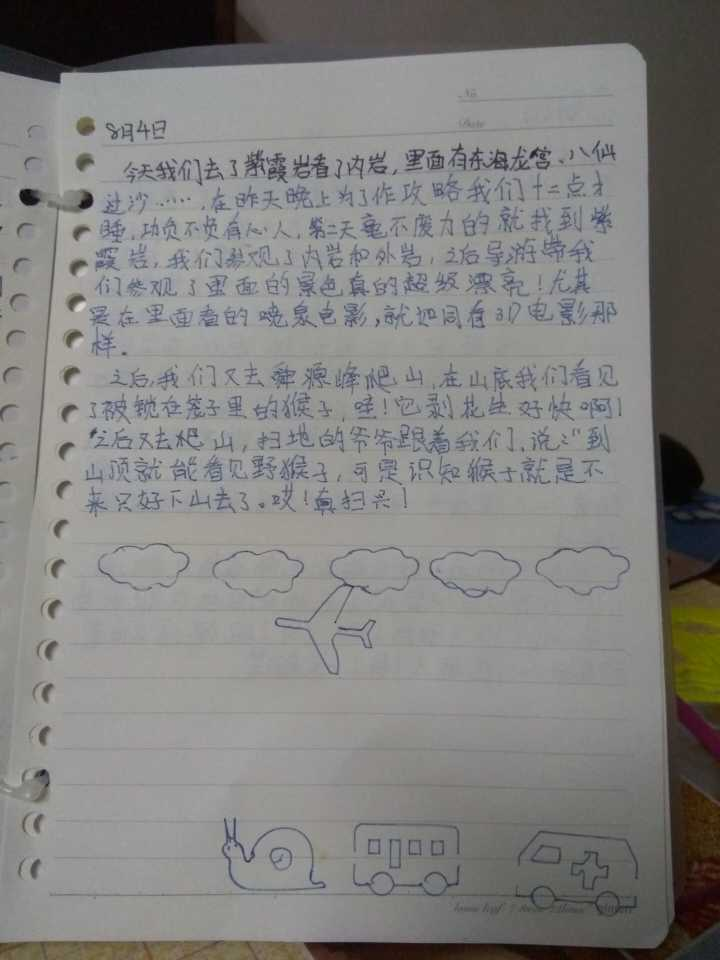 No
Date
8月4日
今天我们去了紫霞岩看了内岩，里面有东海龙宫、八仙
过沙……，在昨天晚上为了作攻略我们十二点才
睡，功负不负有心人，第二天毫不废力的就找到紫
霞岩，我们参观了内岩和外岩，之后导游带我
们参观了里面的景色真的超级漂亮！尤其
是在里面看的喷泉电影，就如同看3D电影那
样。
之后，我们又去舜源峰爬山，在山底我们看见
了被锁在笼子里的猴子，哇！它剥花生好快啊！
之后又去爬山，扫地的爷爷跟着我们，说：“到
山顶就能看见野猴子，可是识知猴子就是不
来只好下山去了。哎！真扫兴！